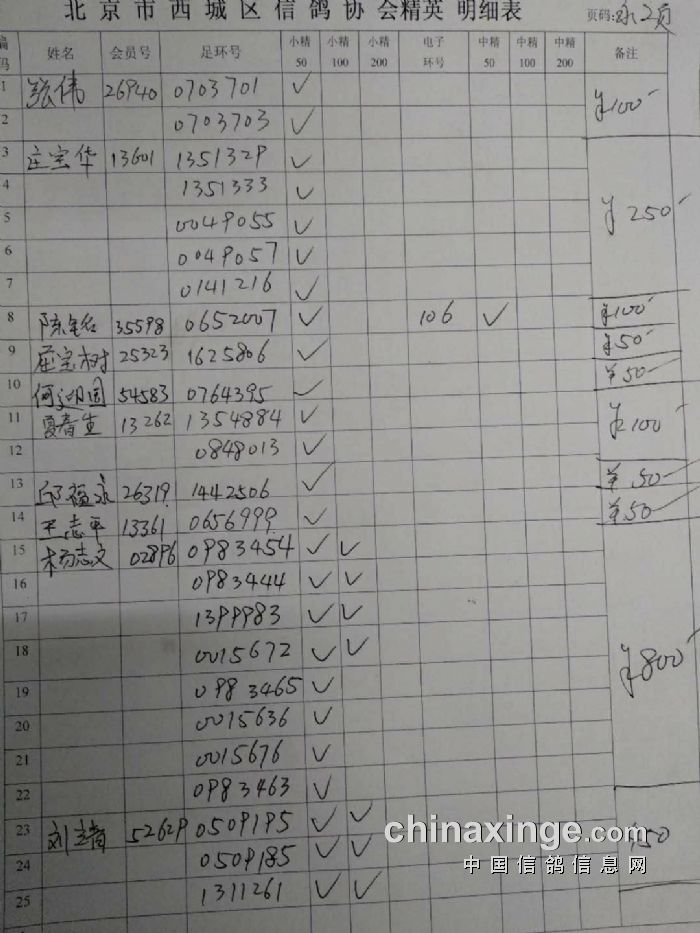 北京市西城区信鸽协会精英 明细表 页码: 2页
编码 姓名 会员号 足环号 小精50 小精100 小精200 电子环号 中精50 中精100 中精200 备注
1 张伟 26940 0703701 ✓ ¥100
2 0703703 ✓
3 庄宝华 13601 1351329 ✓ ¥250
4 1351333 ✓
5 0049055 ✓
6 0049057 ✓
7 0141216 ✓
8 陈 35598 0652007 ✓ 106 ✓ ¥100
9 庄宝树 25323 1625806 ✓ ¥50
10 何 54583 0764395 ✓ ¥50
11 夏春生 13262 1354884 ✓ ¥100
12 0848013 ✓
13 邱福永 26319 1442506 ✓ ¥50
14 王志平 13361 0656999 ✓ ¥50
15 杨志文 02896 0983454 ✓ ✓ ¥800
16 0983444 ✓ ✓
17 1399983 ✓ ✓
18 0015672 ✓ ✓
19 0983465 ✓
20 0015636 ✓
21 0015676 ✓
22 0983463 ✓
23 刘 52629 0509195 ✓ ✓
24 0509185 ✓ ✓
25 1311261 ✓ ✓
chinaxinge.com
中国信鸽信息网